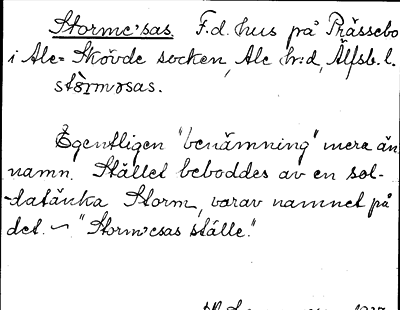 Storme'sas. F.d. hus på Prässebo
i Ale-Skövde socken, Ale hd, Älfsb. l.
stòrməsas.
Egentligen "benämning" mera än
namn. Stället beboddes av en sol-
datänka Storm, varav namnet på
det. ~ "Storm'esas ställe."